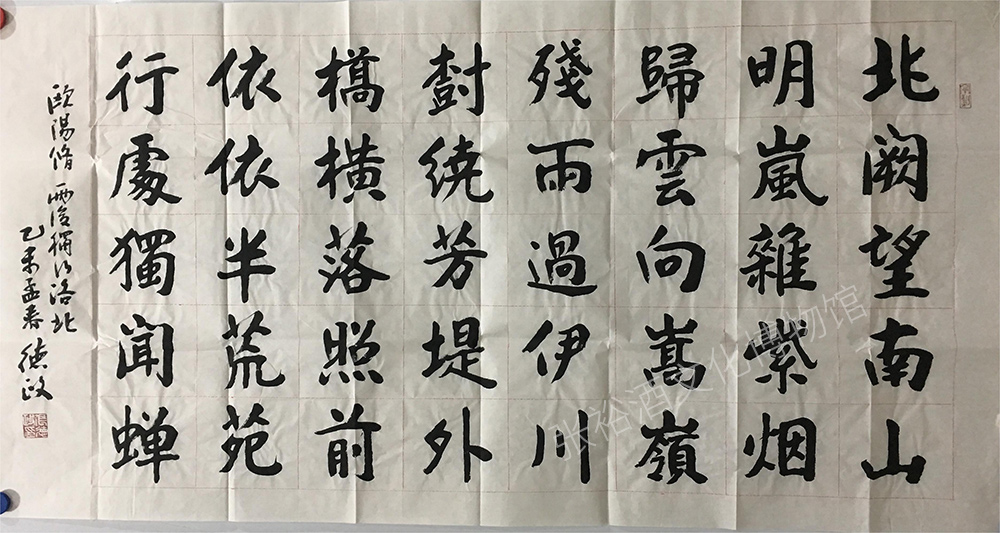 北阙望南山
明嵐雜紫烟
歸雲向嵩嶺
殘雨過伊川
樹繞芳堤外
橋橫落照前
依依半荒苑
行處獨闻蝉
歐陽脩 雨後獨行洛北
乙未孟春 德政
张裕酒文化博物馆